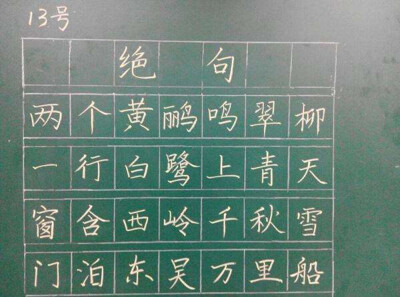 13号
绝句
两个黄鹂鸣翠柳
一行白鹭上青天
窗含西岭千秋雪
门泊东吴万里船